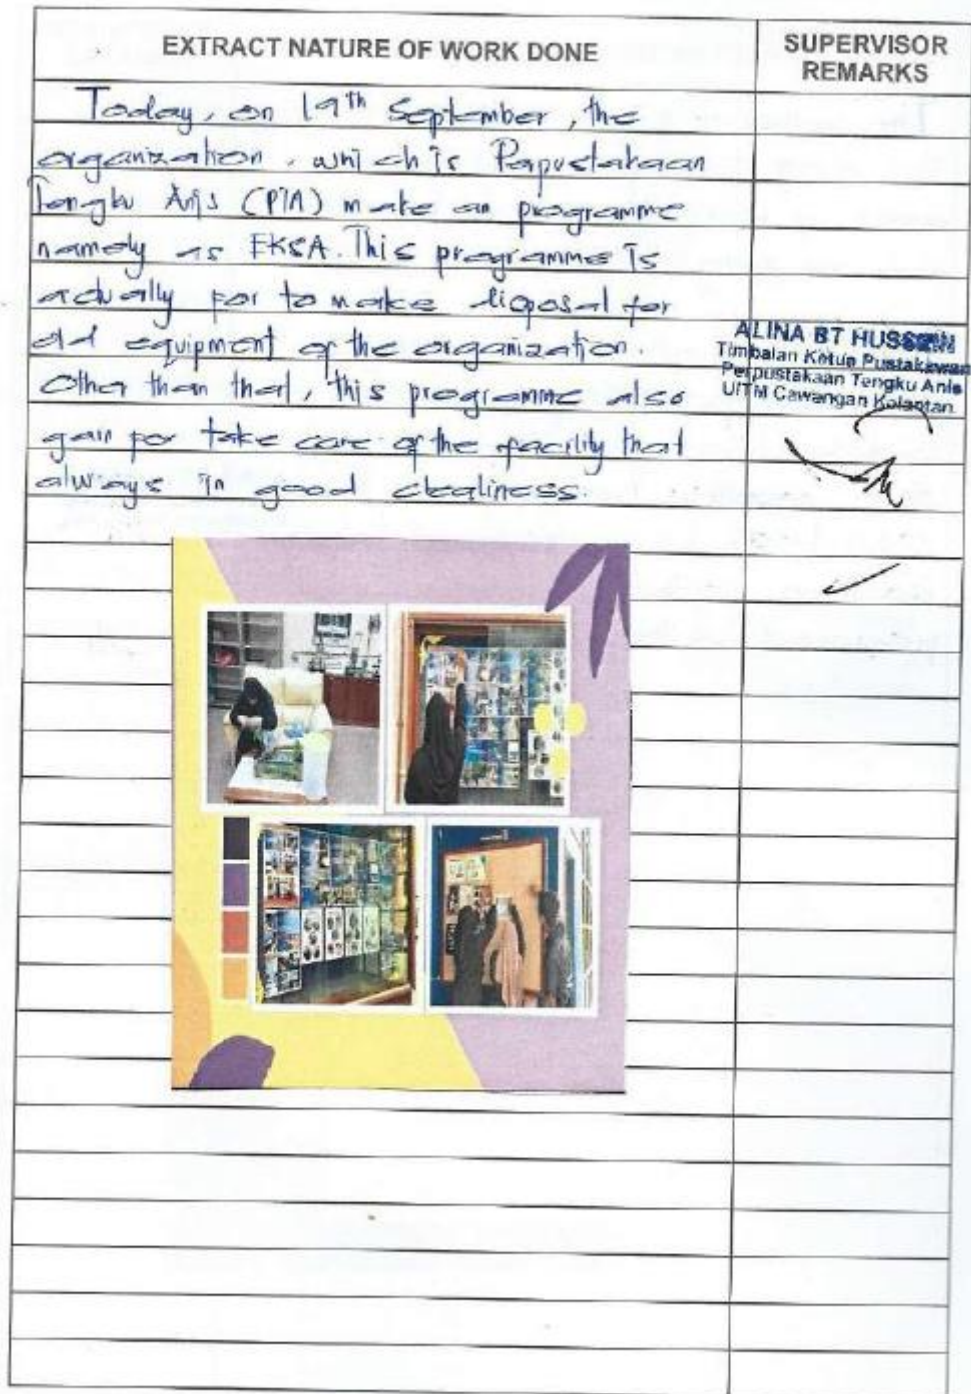 EXTRACT NATURE OF WORK DONE
SUPERVISOR
REMARKS
Today, on 19th September, the
organization, which is Papustakaan
Tengku Anis (PTA) make an programme
namely as EKSA. This programme is
actually for to make disposal for
old equipment of the organization.
Other than that, this programme also
gain for take care of the facility that
always in good
ALINA BT HUSSEIN
Timbalan Ketua Pustakawan
Perpustakaan Tengku Anis
UiTM Cawangan Kelantan